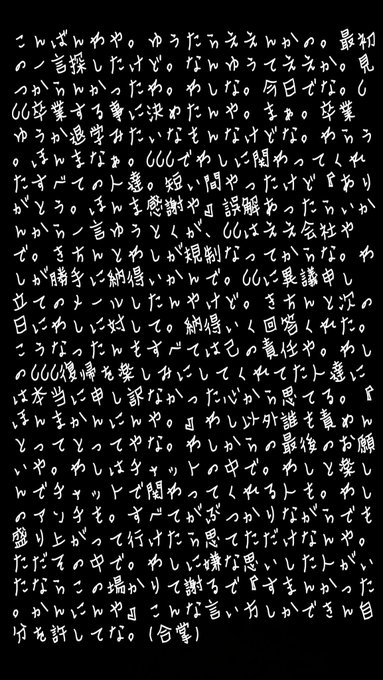 こんばんわや。ゆうたらええんかの。最初
の一言探したけど。なんゆうてええか。見
つからんかったわ。わしな。今日でな。C
CC卒業する事に決めたんや。まぁ。卒業
ゆうか退学みたいなもんなけどな。わらう
。ほんまなぁ。CCCでわしに関わってくれ
たすべての人達。短い間やったけど『あり
がとう。ほんま感謝や』誤解あったらいか
んから一言ゆうとくが、CCはええ会社や
で。きちんとわしが規制なってからな。わ
しが勝手に納得いかんで。CCに異議申し
立てのメールしたんやけど。きちんと次の
日にわしに対して。納得いく回答くれた。
こうなったんもすべては己の責任や。わし
のCCC復帰を楽しみにしてくれてた人達に
は本当に申し訳なかった心から思てる。『
ほんまかんにんや。』わし以外誰も責めん
とってとってやな。わしからの最後のお願
いや。わしはチャットの中で。わしと楽し
んでチャットで関わってくれる人も。わし
のアンチも。すべてがぶつかりながらでも
盛り上がって行けたら思てただけなんや。
ただその中で。わしに嫌な思いした人がい
たならこの場かりて謝るで『すまんかった
。かんにんや』こんな言い方しかできん自
分を許してな。(合掌)